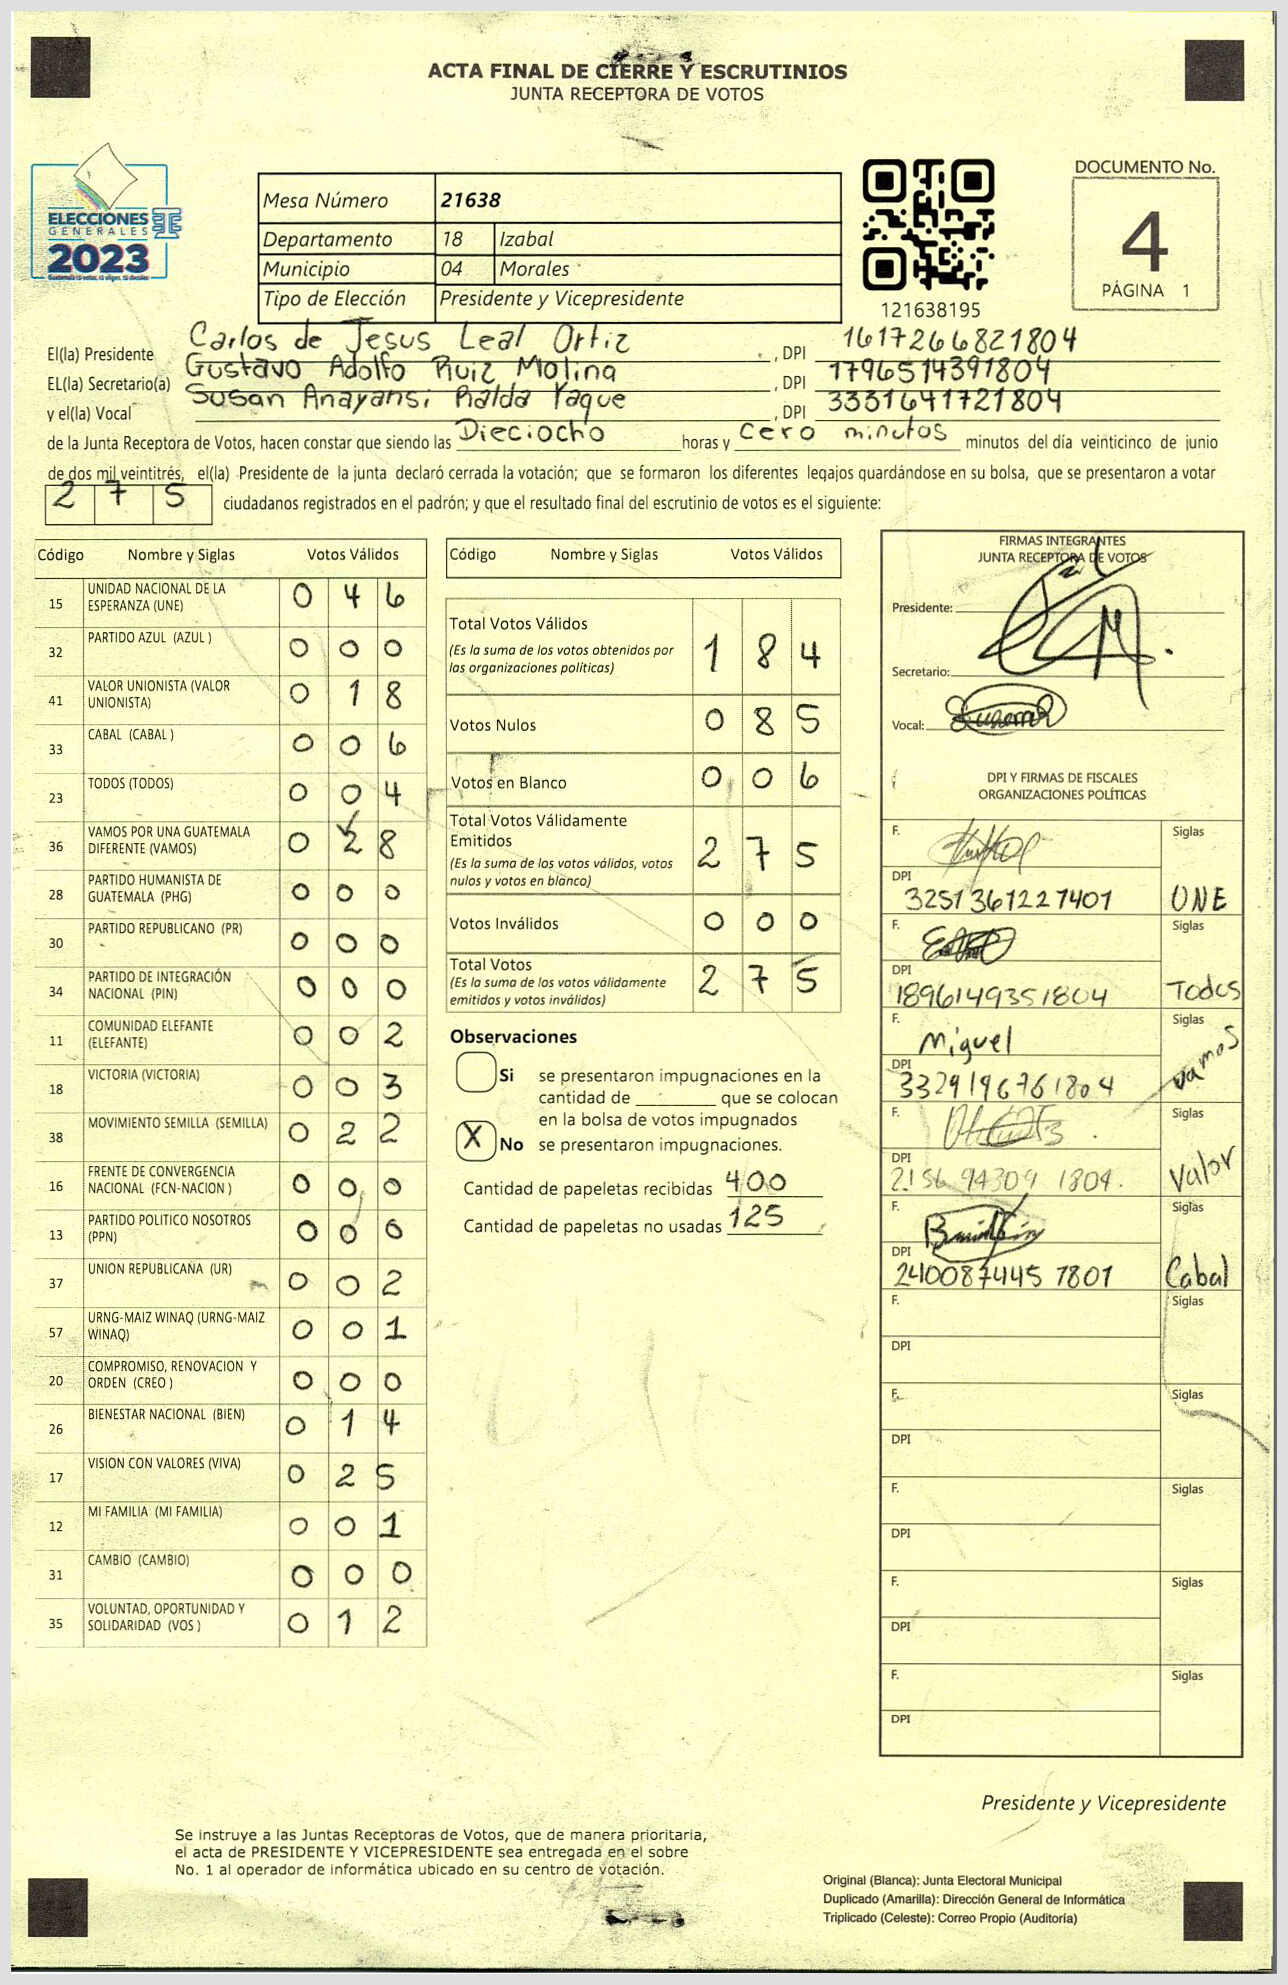 ACTA FINAL DE CIERRE Y ESCRUTINIOS
JUNTA RECEPTORA DE VOTOS
ELECCIONES
GENERALES
2023
Mesa Número 21638
Departamento 18 Izabal
Municipio 04 Morales
Tipo de Elección Presidente y Vicepresidente
121638195
DOCUMENTO No.
4
PÁGINA 1
El(la) Presidente Carlos de Jesus Leal Ortiz , DPI 1617266821804
EL(la) Secretario(a) Gustavo Adolfo Ruiz Molina , DPI 1796514391804
y el(la) Vocal Susan Anayansi Ralda Yaque , DPI 3331641721804
de la Junta Receptora de Votos, hacen constar que siendo las Dieciocho horas y cero minutos minutos del día veinticinco de junio
de dos mil veintitrés, el(la) Presidente de la junta declaró cerrada la votación; que se formaron los diferentes legajos guardándose en su bolsa, que se presentaron a votar
2 7 5 ciudadanos registrados en el padrón; y que el resultado final del escrutinio de votos es el siguiente:
Código Nombre y Siglas Votos Válidos
15 UNIDAD NACIONAL DE LA ESPERANZA (UNE) 0 4 6
32 PARTIDO AZUL (AZUL ) 0 0 0
41 VALOR UNIONISTA (VALOR UNIONISTA) 0 1 8
33 CABAL (CABAL ) 0 0 6
23 TODOS (TODOS) 0 0 4
36 VAMOS POR UNA GUATEMALA DIFERENTE (VAMOS) 0 2 8
28 PARTIDO HUMANISTA DE GUATEMALA (PHG) 0 0 0
30 PARTIDO REPUBLICANO (PR) 0 0 0
34 PARTIDO DE INTEGRACIÓN NACIONAL (PIN) 0 0 0
11 COMUNIDAD ELEFANTE (ELEFANTE) 0 0 2
18 VICTORIA (VICTORIA) 0 0 3
38 MOVIMIENTO SEMILLA (SEMILLA) 0 2 2
16 FRENTE DE CONVERGENCIA NACIONAL (FCN-NACION ) 0 0 0
13 PARTIDO POLITICO NOSOTROS (PPN) 0 0
37 UNION REPUBLICANA (UR) 0 0 2
57 URNG-MAIZ WINAQ (URNG-MAIZ WINAQ) 0 0 1
20 COMPROMISO, RENOVACION Y ORDEN (CREO ) 0 0 0
26 BIENESTAR NACIONAL (BIEN) 0 1 4
17 VISION CON VALORES (VIVA) 0 2 5
12 MI FAMILIA (MI FAMILIA) 0 0 1
31 CAMBIO (CAMBIO) 0 0 0
35 VOLUNTAD, OPORTUNIDAD Y SOLIDARIDAD (VOS ) 0 1 2
Código Nombre y Siglas Votos Válidos
Total Votos Válidos 1 8 4
(Es la suma de los votos obtenidos por
las organizaciones políticas)
Votos Nulos 0 8 5
Votos en Blanco 0 0 6
Total Votos Válidamente
Emitidos 2 7 5
(Es la suma de los votos válidos, votos
nulos y votos en blanco)
Votos Inválidos 0 0 0
Total Votos 2 7 5
(Es la suma de los votos válidamente
emitidos y votos inválidos)
Observaciones
Si se presentaron impugnaciones en la
cantidad de ________ que se colocan
en la bolsa de votos impugnados
X No se presentaron impugnaciones.
Cantidad de papeletas recibidas 400
Cantidad de papeletas no usadas 125
FIRMAS INTEGRANTES
JUNTA RECEPTORA DE VOTOS
Presidente:
Secretario:
Vocal:
DPI Y FIRMAS DE FISCALES
ORGANIZACIONES POLÍTICAS
F. Siglas
DPI 3251361227401 UNE
F. Siglas
DPI 1896149351804 Todos
F. Miguel Siglas
DPI 3329196761804 Vamos
F. Siglas
DPI 2156 94309 1804. Valor
F. Siglas
DPI 2400874457801 Cabal
F. Siglas
DPI
F. Siglas
DPI
F. Siglas
DPI
F. Siglas
DPI
F. Siglas
DPI
Presidente y Vicepresidente
Se instruye a las Juntas Receptoras de Votos, que de manera prioritaria,
el acta de PRESIDENTE Y VICEPRESIDENTE sea entregada en el sobre
No. 1 al operador de informática ubicado en su centro de votación.
Original (Blanca): Junta Electoral Municipal
Duplicado (Amarilla): Dirección General de Informática
Triplicado (Celeste): Correo Propio (Auditoría)